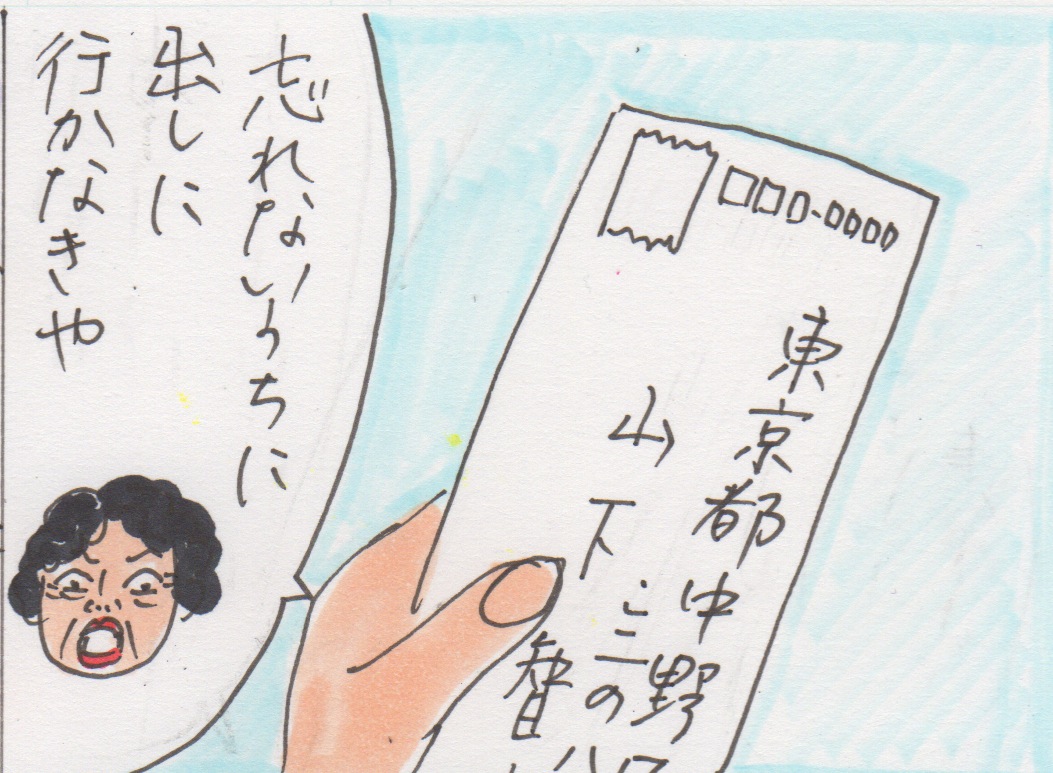 東京都中野
二の八
山下智
忘れないうちに
出しに
行かなきや